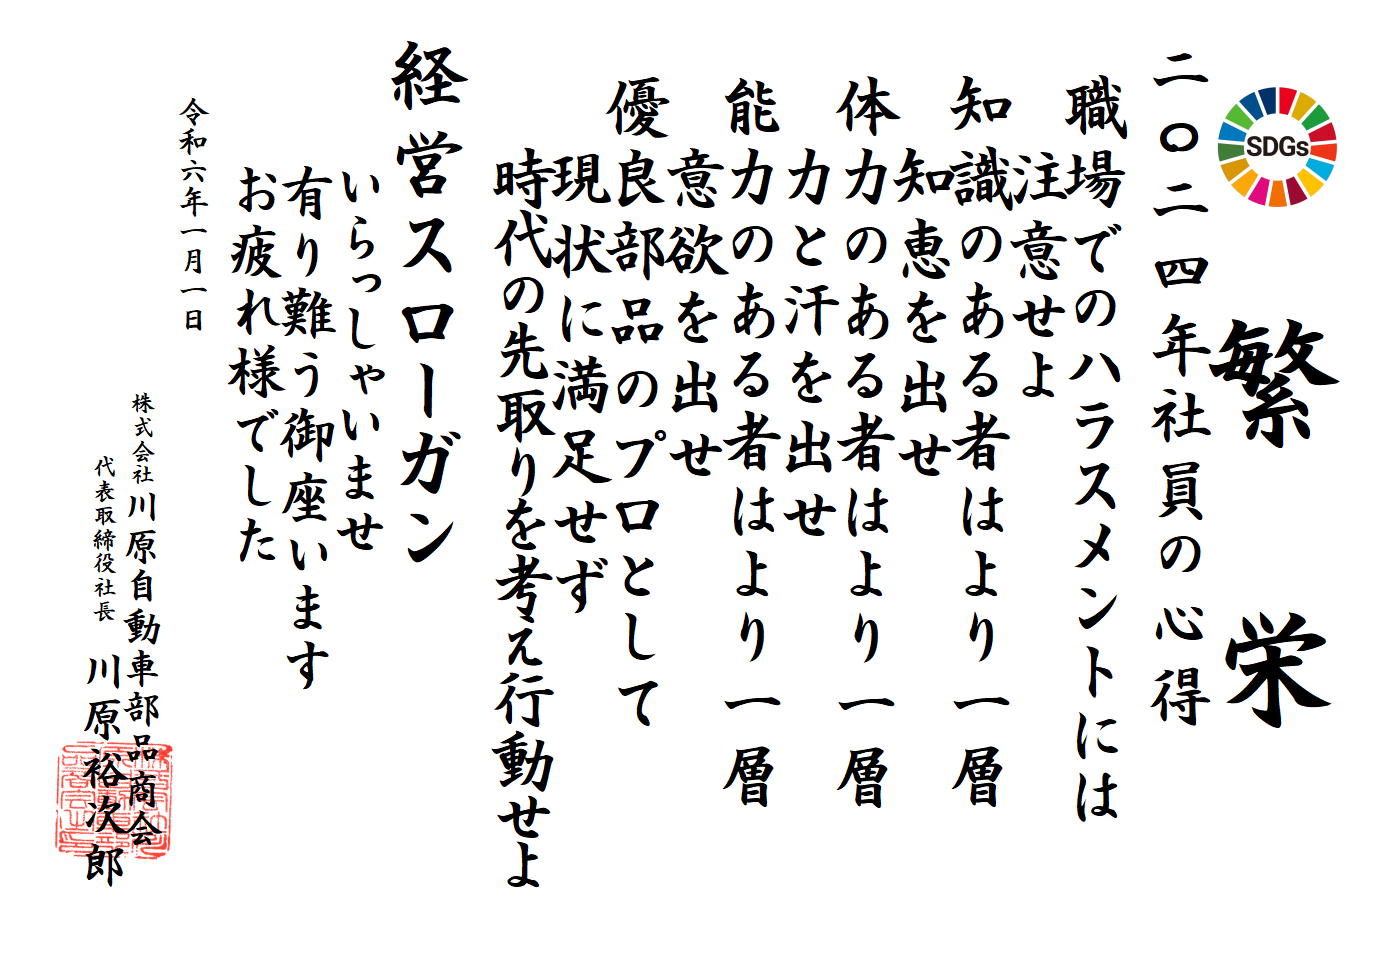 SDGs
繁栄
二〇二四年社員の心得
職場でのハラスメントには
注意せよ
知識のある者はより一層
知恵を出せ
体力のある者はより一層
力と汗を出せ
能力のある者はより一層
意欲を出せ
優良部品のプロとして
現状に満足せず
時代の先取りを考え行動せよ
経営スローガン
いらっしゃいませ
有り難う御座います
お疲れ様でした
令和六年一月一日
株式会社川原自動車部品商会
代表取締役社長 川原裕次郎